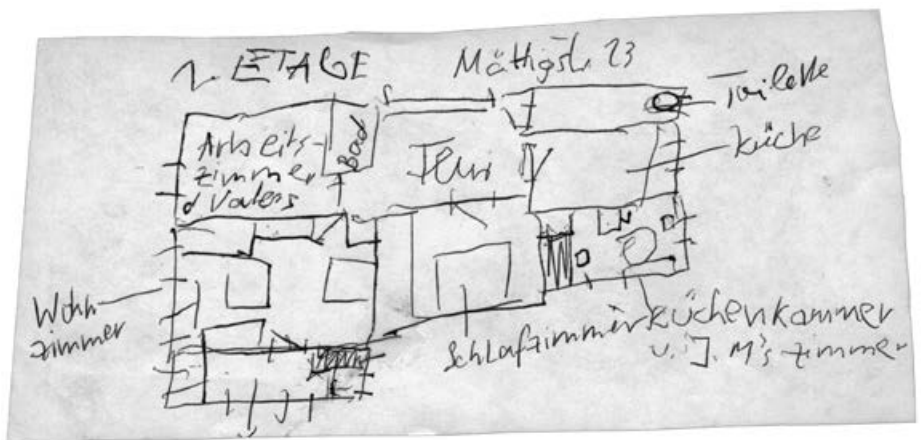 ETAGE
Mättigstr. 23
Toilette
Arbeits-
zimmer
d Vaters
Bad
Flur
Küche
Wohn
zimmer
Schlafzimmer
Küchenkammer
u. J. M's zimmer